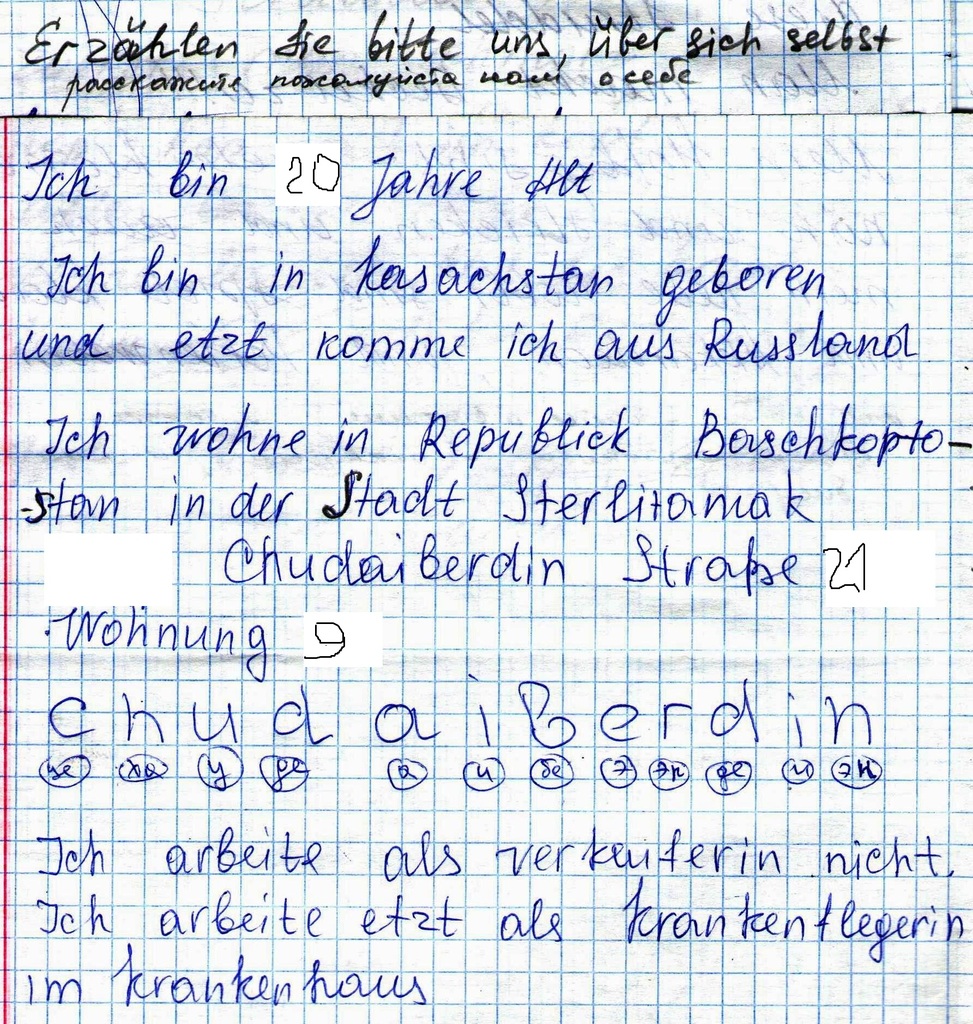 Erzählen Sie bitte uns, über sich selbst
расскажите пожалуйста нам о себе
Ich bin 20 Jahre Alt
Ich bin in Kasachstan geboren
und etzt komme ich aus Russland
Ich wohne in Republick Baschkopto-
-stan in der Stadt Sterlitamak
Chudaiberdin Straße 21
Wohnung 9
C h u d a i B e r d i n
це ха у де а и бе э эр де и эн
Ich arbeite als verkeuferin nicht.
Ich arbeite etzt als Krankenflegerin
im Krankenhaus